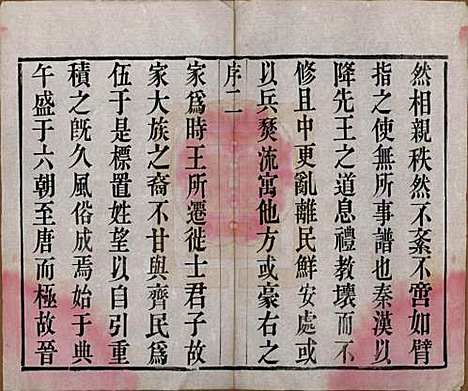 然相親秩然不紊不啻如臂
指之使無所事譜也秦漢以
降先王之道息禮敎壞而不
修且中更亂離民鮮安處或
以兵燹流寓他方或豪右之
序二
家爲時王所遷徙士君子故
家大族之裔不甘與齊民爲
伍于是標置姓望以自引重
積之旣久風俗成焉始于典
午盛于六朝至唐而極故晉